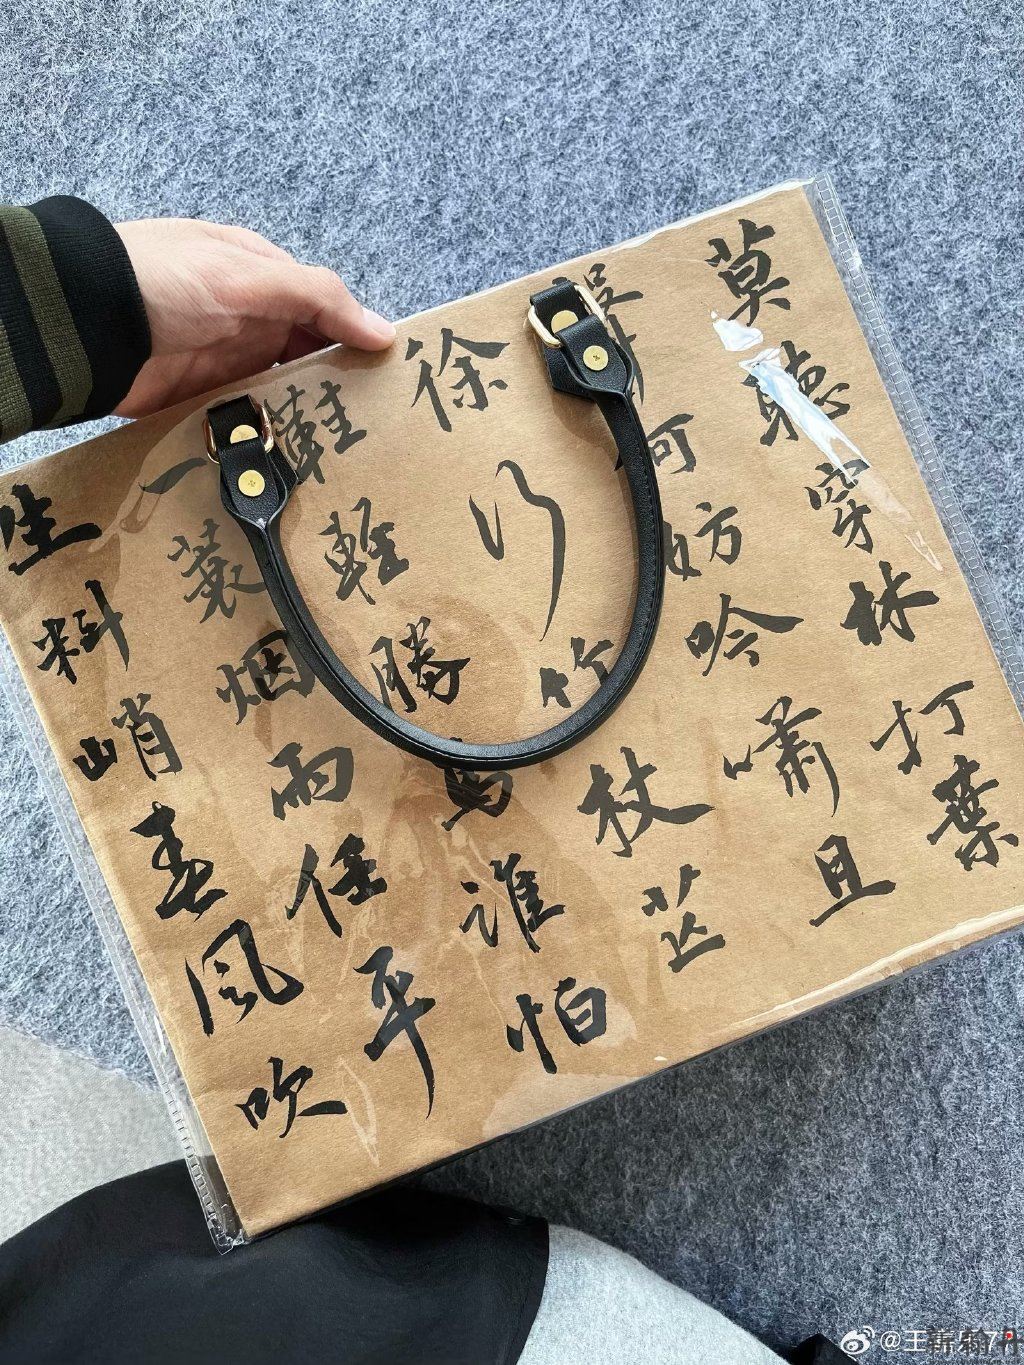 莫聽穿林打葉
聲何妨吟嘯且
徐行竹杖芒
鞋輕勝馬誰怕
一蓑烟雨任平
生料峭春風吹